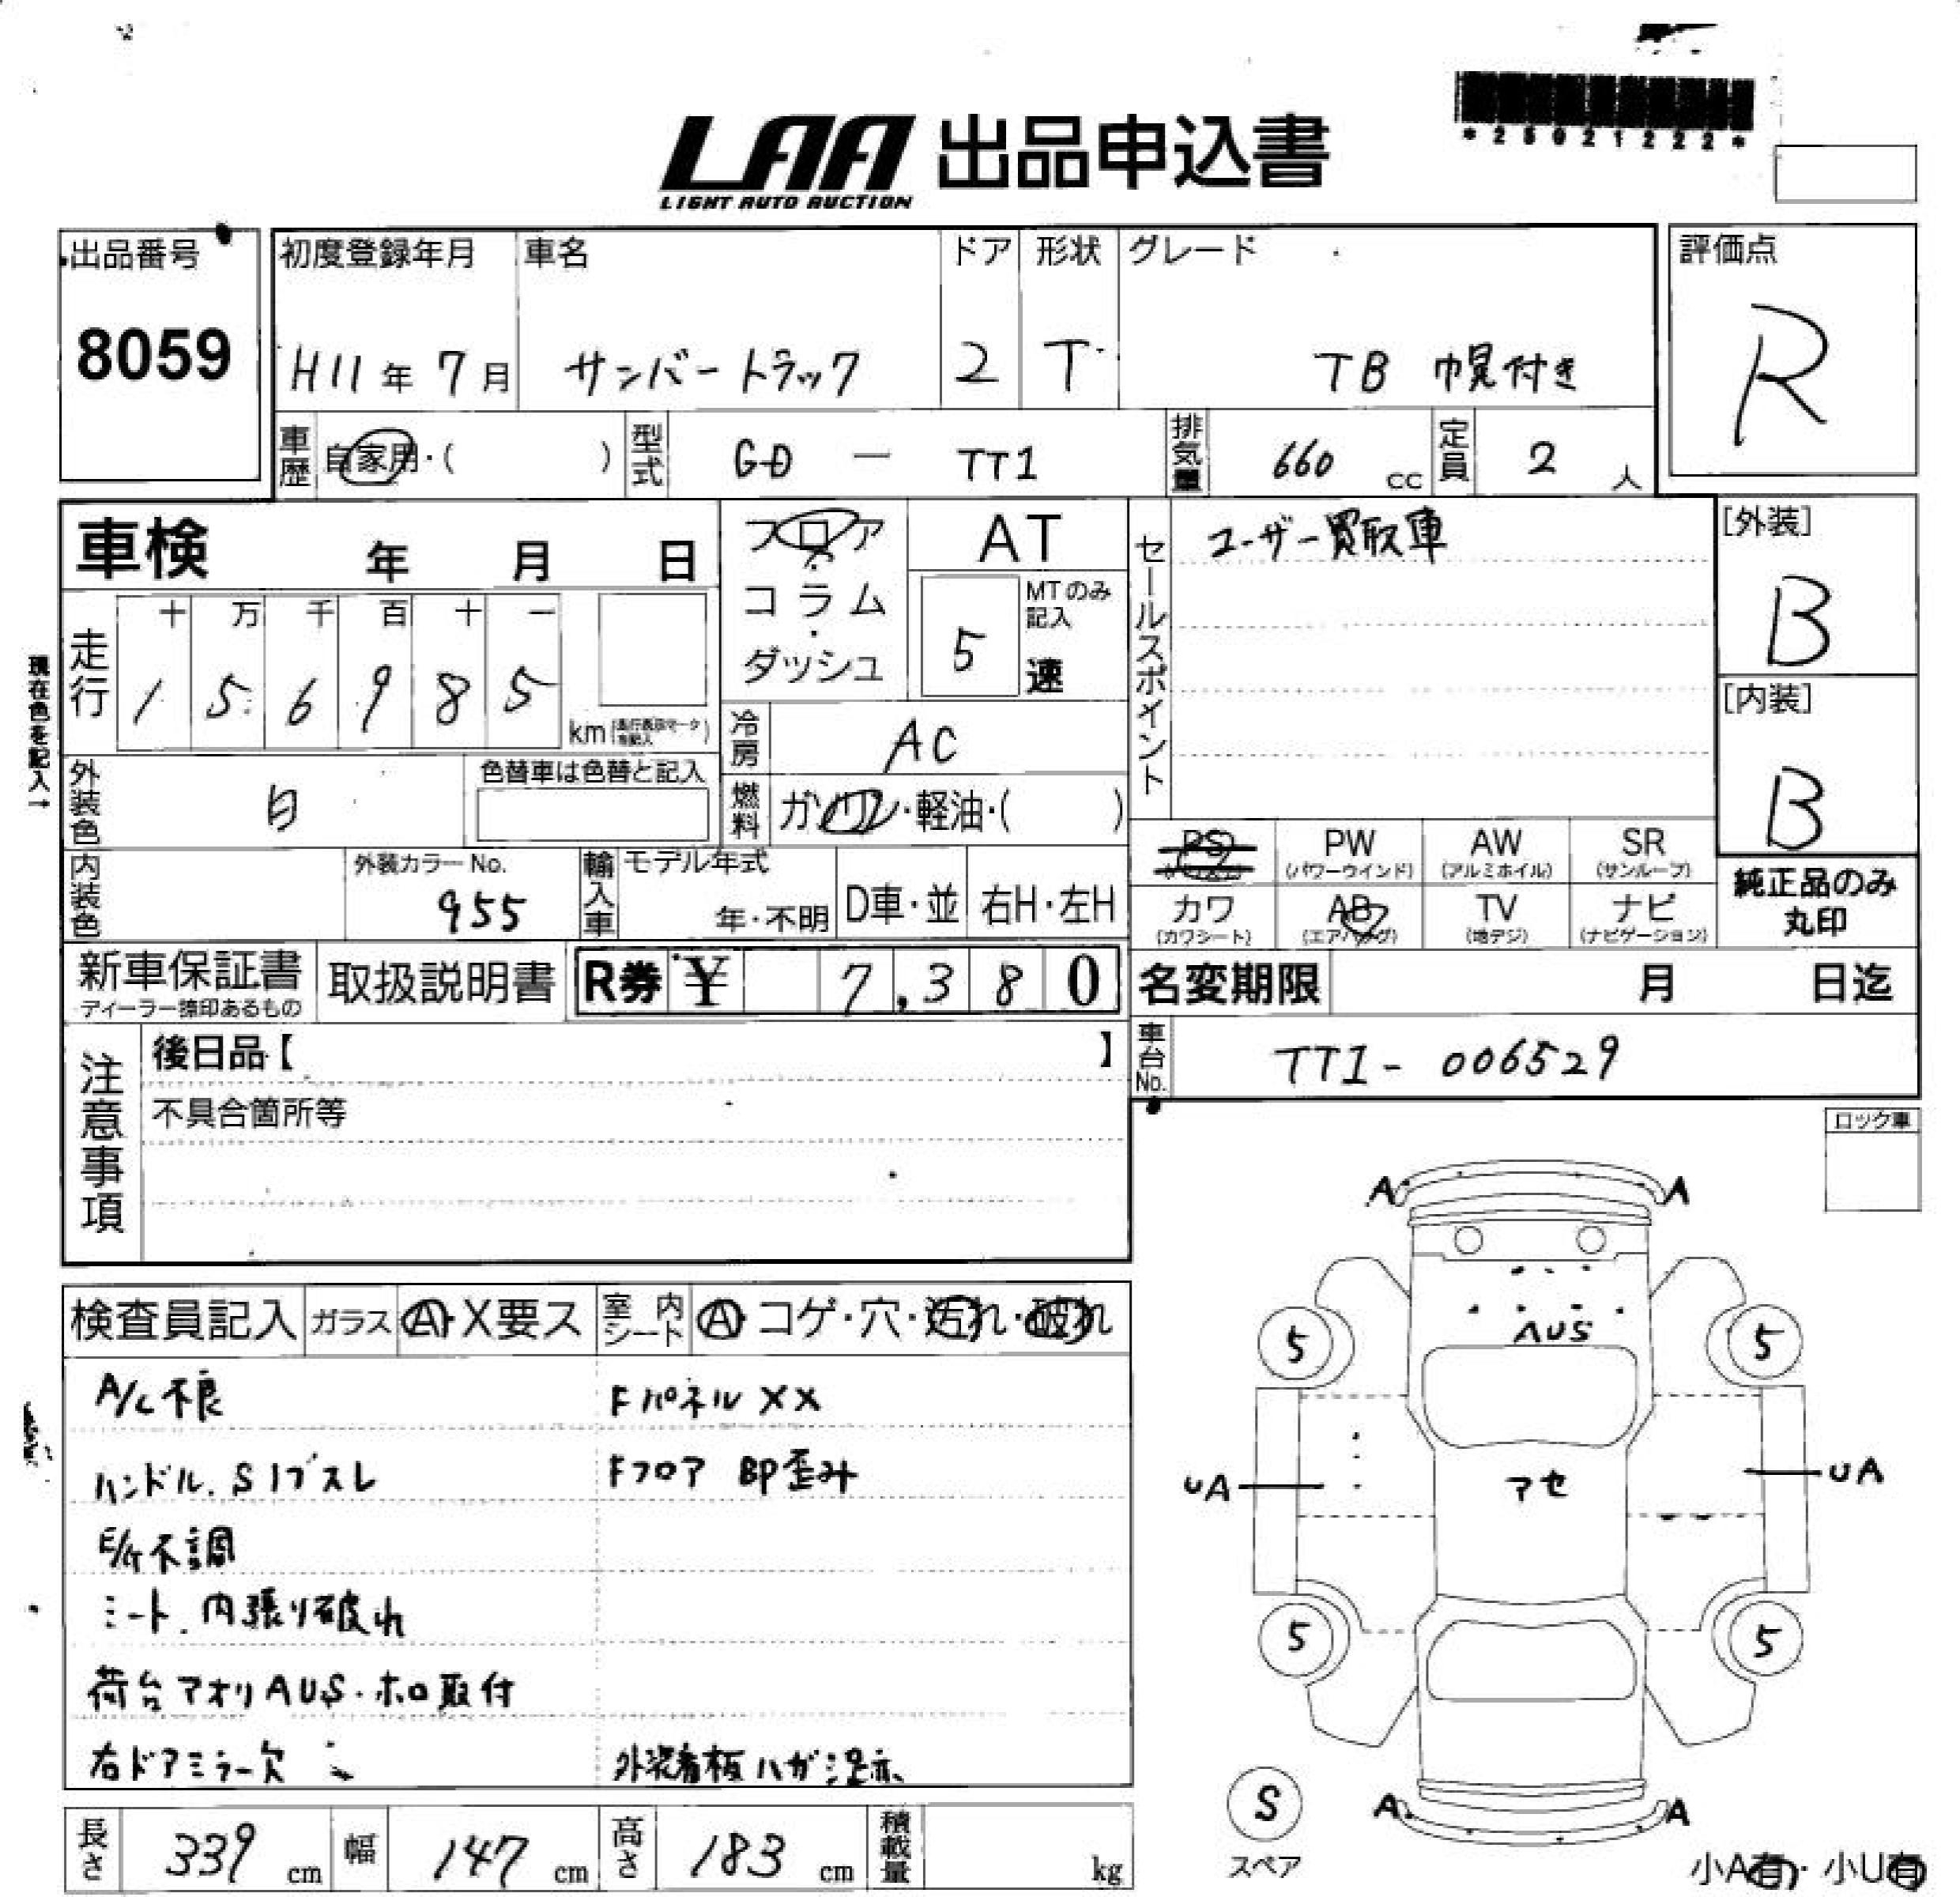 *25021222*
LAA 出品申込書
LIGHT AUTO AUCTION
出品番号 初度登録年月 車名 ドア 形状 グレード 評価点
8059 H11年 7月 サンバートラック 2 T TB 幌付き R
車歴 自家用・( ) 型式 GD - TT1 排気量 660 cc 定員 2 人
車検 年 月 日
フロア・コラム・ダッシュ
AT
5 MTのみ記入 速
セールスポイント ユーザー買取車
[外装] B
[内装] B
現在色を記入→
走行 十 万 千 百 十 一
1 5 6 9 8 5 km
冷房 AC
外装色 白 色替車は色替と記入
燃料 ガソリン・軽油・( )
PS PW (パワーウインド) AW (アルミホイル) SR (サンルーフ)
カワ (カワシート) AB (エアバッグ) TV (地デジ) ナビ (ナビゲーション)
純正品のみ
丸印
内装色 外装カラーNo. 955 輸入車 モデル年式 年・不明 D車・並 右H・左H
新車保証書 取扱説明書 R券 ¥ 7,380
ディーラー捺印あるもの
名変期限 月 日迄
車台No. TT1- 006529
注意事項 後日品【 】
不具合箇所等
ロック車
検査員記入 ガラス A・X要ス 室内シート A・コゲ・穴・汚れ・破れ
A/C不良 Fパネル XX
ハンドル. Sノブスレ Fフロア BP歪み
E/G不調
シート. 内張り破れ
荷台アオリAUS・ホロ取付
右ドアミラー欠 外装看板ハガシ
A A
AUS
5 5
UA アセ UA
5 5
S
スペア
A A
小A有・小U有
長さ 339 cm 幅 147 cm 高さ 183 cm 積載量 kg